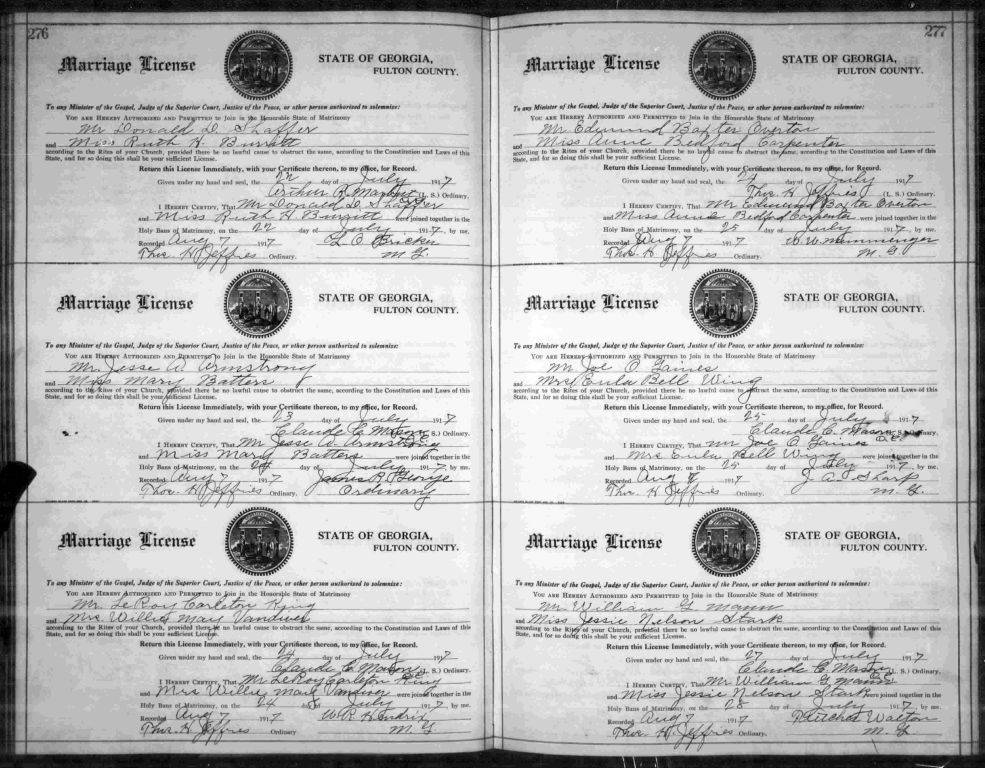 276
Marriage License
STATE OF GEORGIA,
FULTON COUNTY.
To any Minister of the Gospel, Judge of the Superior Court, Justice of the Peace, or other person authorized to solemnize:
YOU ARE HEREBY AUTHORIZED AND PERMITTED to Join in the Honorable State of Matrimony
Mr Donald D. Shaffer
and Miss Ruth H.
according to the Rites of your Church, provided there be no lawful cause to obstruct the same, according to the Constitution and Laws of this
State, and for so doing this shall be your sufficient License.
Return this License Immediately, with your Certificate thereon, to my office, for Record.
Given under my hand and seal, the 22 day of July 1917
Arthur R. (L. S.) Ordinary.
I HEREBY CERTIFY, That Mr Donald D. Shaffer
and Miss Ruth H were joined together in the
Holy Bans of Matrimony, on the 22 day of July 1917, by me.
Recorded Aug 7 1917 L. O. Bricker
Thos. H. Jeffries Ordinary. M. G.
Marriage License
STATE OF GEORGIA,
FULTON COUNTY.
To any Minister of the Gospel, Judge of the Superior Court, Justice of the Peace, or other person authorized to solemnize:
YOU ARE HEREBY AUTHORIZED AND PERMITTED to Join in the Honorable State of Matrimony
Mr. Jesse A. Armstrong
and Miss Mary Batters
according to the Rites of your Church, provided there be no lawful cause to obstruct the same, according to the Constitution and Laws of this
State, and for so doing this shall be your sufficient License.
Return this License Immediately, with your Certificate thereon, to my office, for Record.
Given under my hand and seal, the 23 day of July 1917
Claude C. Mason (L. S.) Ordinary.
I HEREBY CERTIFY, That Mr Jesse A. Armstrong
and Miss Mary Batters were joined together in the
Holy Bans of Matrimony, on the 24 day of July 1917, by me.
Recorded Aug 7 1917 James R. George
Thos. H. Jeffries Ordinary. Ordinary
Marriage License
STATE OF GEORGIA,
FULTON COUNTY.
To any Minister of the Gospel, Judge of the Superior Court, Justice of the Peace, or other person authorized to solemnize:
YOU ARE HEREBY AUTHORIZED AND PERMITTED to Join in the Honorable State of Matrimony
Mr. LeRoy Carleton King
and Mrs Willie May Vandiver
according to the Rites of your Church, provided there be no lawful cause to obstruct the same, according to the Constitution and Laws of this
State, and for so doing this shall be your sufficient License.
Return this License Immediately, with your Certificate thereon, to my office, for Record.
Given under my hand and seal, the 24 day of July 1917
Claude C. Mason (L. S.) Ordinary.
I HEREBY CERTIFY, That Mr LeRoy Carleton King
and Mrs Willie May Vandiver were joined together in the
Holy Bans of Matrimony, on the 24 day of July 1917, by me.
Recorded Aug 7 1917 W. R. Hendrix
Thos. H. Jeffries Ordinary M. G
277
Marriage License
STATE OF GEORGIA,
FULTON COUNTY.
To any Minister of the Gospel, Judge of the Superior Court, Justice of the Peace, or other person authorized to solemnize:
YOU ARE HEREBY AUTHORIZED AND PERMITTED to Join in the Honorable State of Matrimony
Mr Edmund Baxter Overton
and Miss Annie Bedford Carpenter
according to the Rites of your Church, provided there be no lawful cause to obstruct the same, according to the Constitution and Laws of this
State, and for so doing this shall be your sufficient License.
Return this License Immediately, with your Certificate thereon, to my office, for Record.
Given under my hand and seal, the 24 day of July 1917
Thos. H. Jeffries (L. S.) Ordinary.
I HEREBY CERTIFY, That Mr Edmund Baxter Overton
and Miss Annie Bedford Carpenter were joined together in the
Holy Bans of Matrimony, on the 25 day of July 1917, by me.
Recorded Aug 7 1917 W. W. Memminger
Thos. H. Jeffries Ordinary. M. G.
Marriage License
STATE OF GEORGIA,
FULTON COUNTY.
To any Minister of the Gospel, Judge of the Superior Court, Justice of the Peace, or other person authorized to solemnize:
YOU ARE HEREBY AUTHORIZED AND PERMITTED to Join in the Honorable State of Matrimony
Mr. Joe O.
and Mrs Eula Bell Wing
according to the Rites of your Church, provided there be no lawful cause to obstruct the same, according to the Constitution and Laws of this
State, and for so doing this shall be your sufficient License.
Return this License Immediately, with your Certificate thereon, to my office, for Record.
Given under my hand and seal, the 25 day of July 1917
Claude C. Mason (L. S.) Ordinary.
I HEREBY CERTIFY, That Mr Joe O
and Mrs Eula Bell Wing were joined together in the
Holy Bans of Matrimony, on the 25 day of July 1917, by me.
Recorded Aug 7 1917 J. A. Sharp
Thos. H. Jeffries Ordinary. M. G.
Marriage License
STATE OF GEORGIA,
FULTON COUNTY.
To any Minister of the Gospel, Judge of the Superior Court, Justice of the Peace, or other person authorized to solemnize:
YOU ARE HEREBY AUTHORIZED AND PERMITTED to Join in the Honorable State of Matrimony
Mr William G Mann
and Miss Jessie Nelson Stark
according to the Rites of your Church, provided there be no lawful cause to obstruct the same, according to the Constitution and Laws of this
State, and for so doing this shall be your sufficient License.
Return this License Immediately, with your Certificate thereon, to my office, for Record.
Given under my hand and seal, the 27 day of July 1917
Claude C. Mason (L. S.) Ordinary.
I HEREBY CERTIFY, That Mr William G Mann
and Miss Jessie Nelson Stark were joined together in the
Holy Bans of Matrimony, on the 28 day of July 1917, by me.
Recorded Aug 7 1917 Fletcher Walton
Thos. H. Jeffries Ordinary. M. G